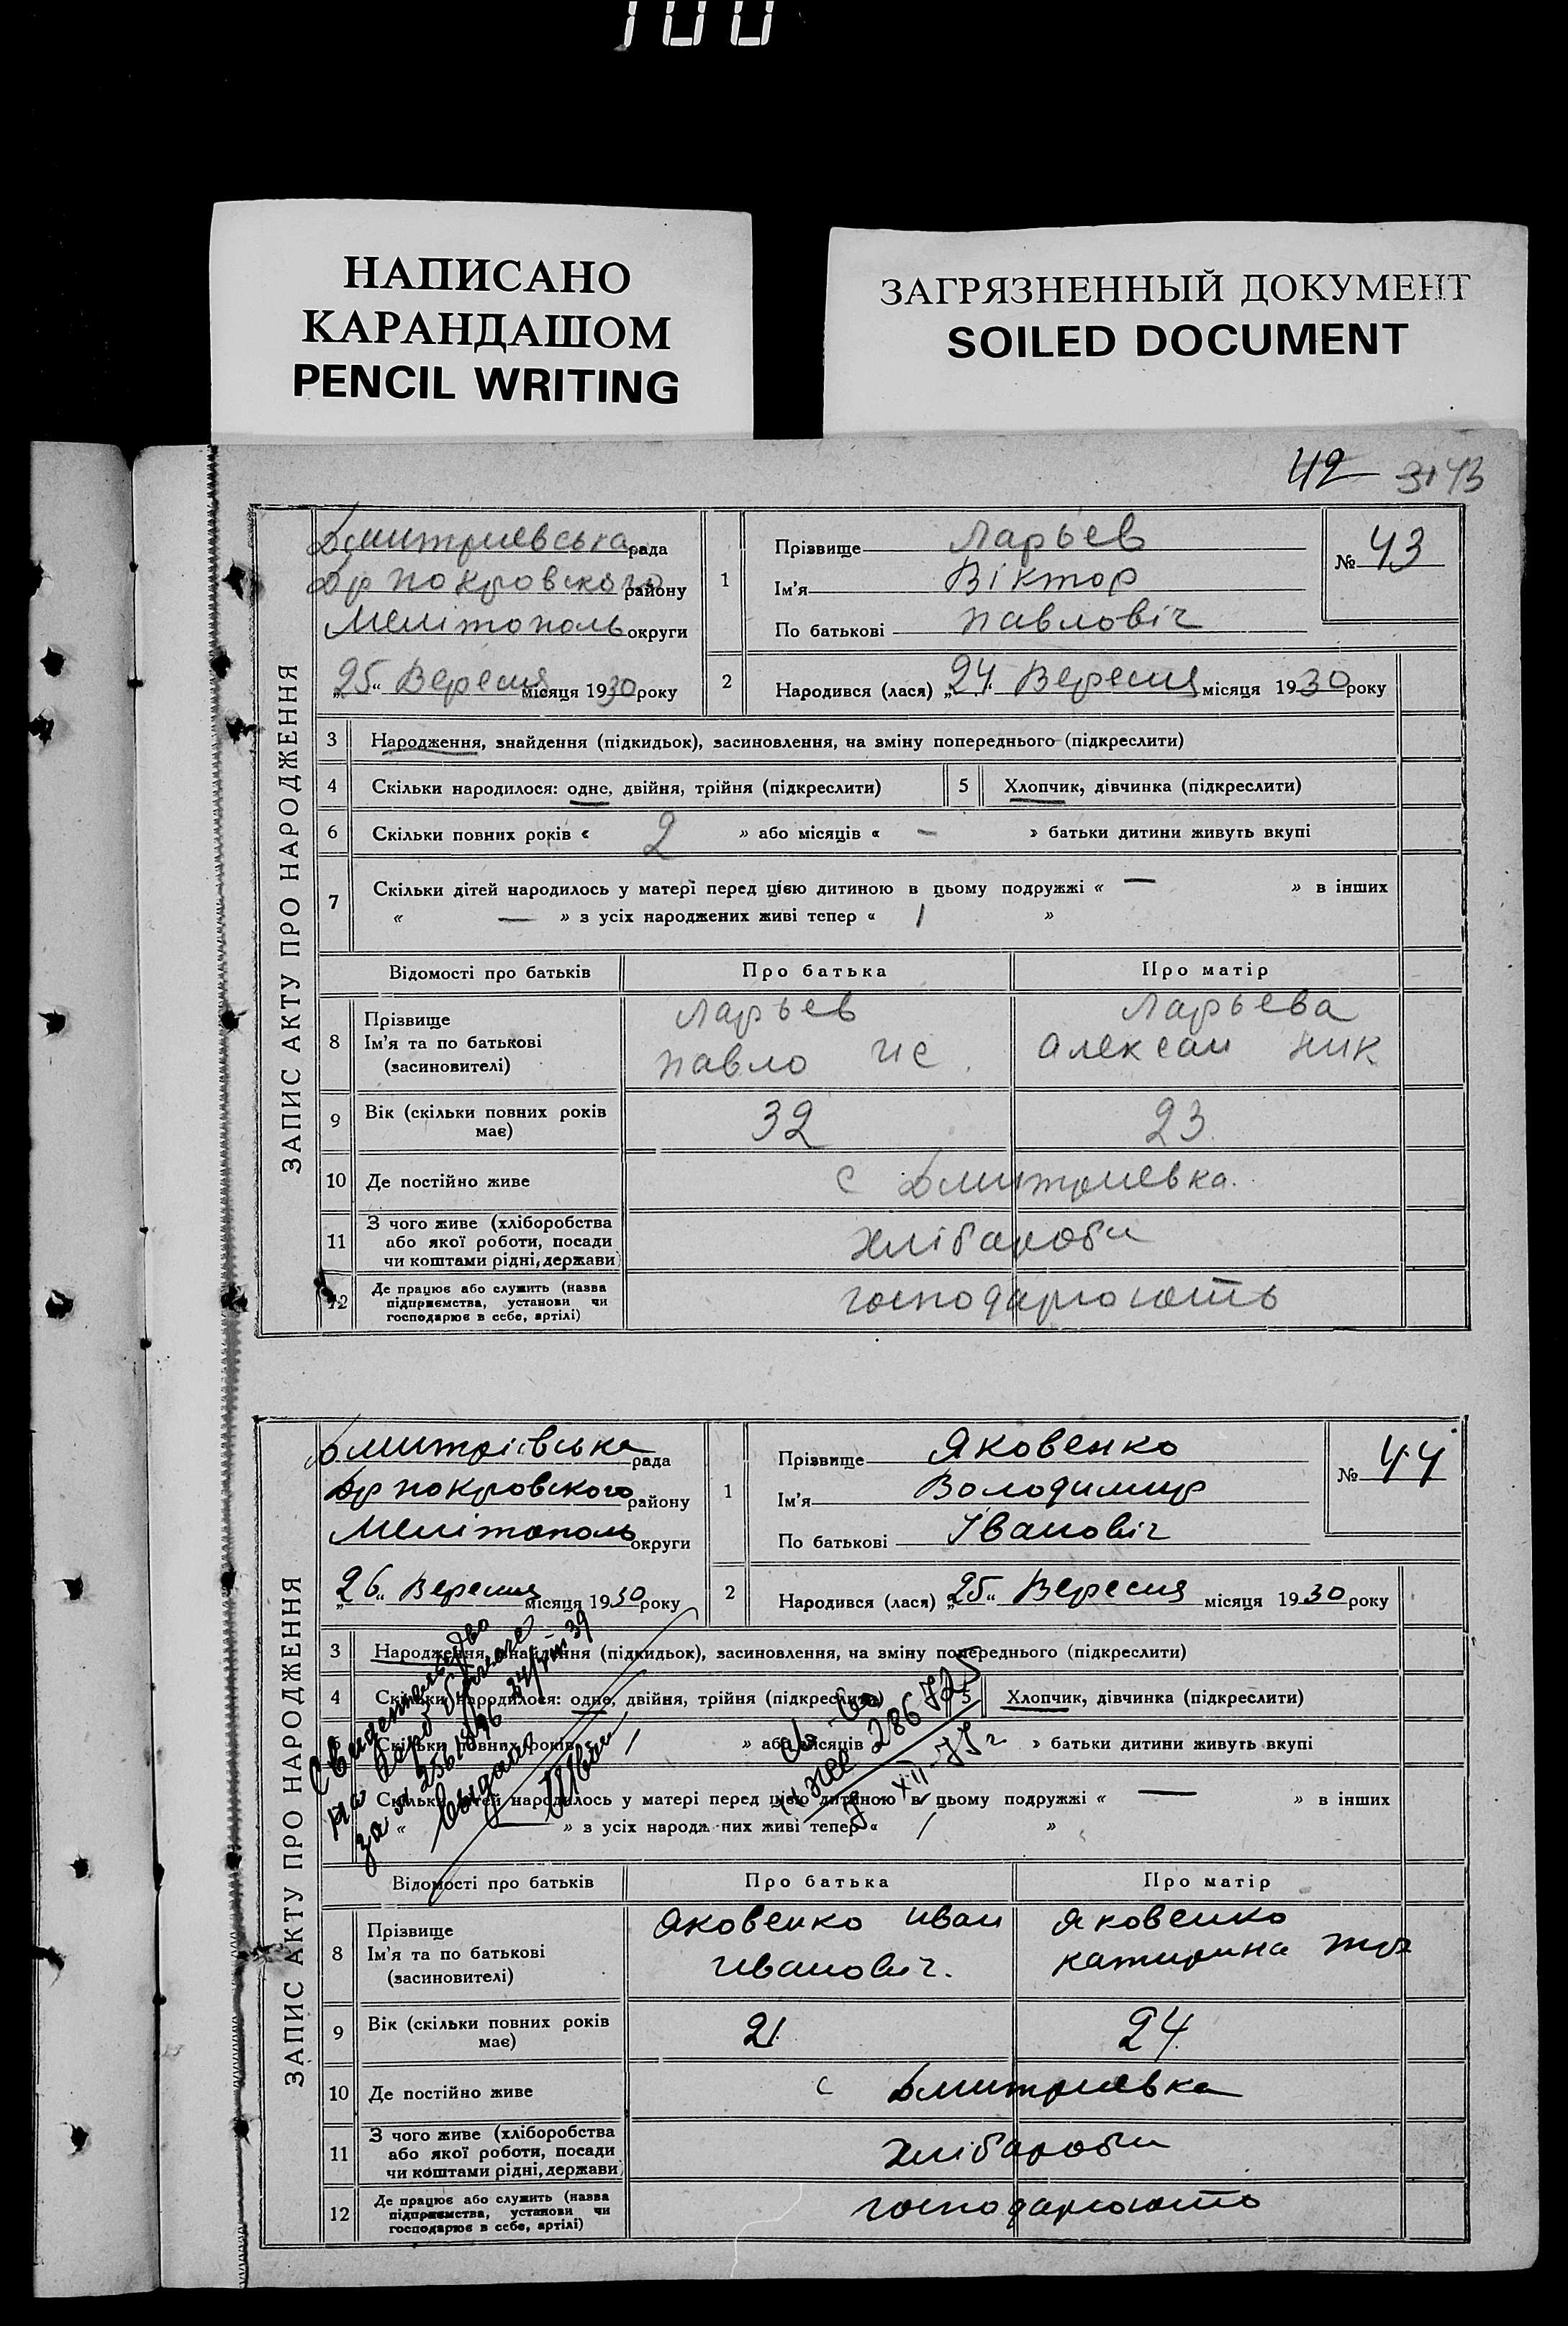 100
НАПИСАНО
КАРАНДАШОМ
PENCIL WRITING
ЗАГРЯЗНЕННЫЙ ДОКУМЕНТ
SOILED DOCUMENT
42 43
ЗАПИС АКТУ ПРО НАРОДЖЕННЯ
Дмитриевська рада
Др покровского району
Мелітополь округи
„25“ Вересня місяця 1930 року
1
Прізвище Ларьев
Ім'я Віктор
По батькові Павловіч
№ 43
2 Народився (лася) „24“ Вересня місяця 1930 року
3 Народження, знайдення (підкидьок), засиновлення, на зміну попереднього (підкреслити)
4 Скільки народилося: одне, двійня, трійня (підкреслити) 5 Хлопчик, дівчинка (підкреслити)
6 Скільки повних років « 2 » або місяців « — » батьки дитини живуть вкупі
7 Скільки дітей народилось у матері перед цією дитиною в цьому подружжі « — » в інших
« — » з усіх народжених живі тепер « 1 »
Відомості про батьків Про батька Про матір
8 Прізвище
Ім'я та по батькові
(засиновителі)
Ларьев
Павло ис
Ларьева
Алексан ник
9 Вік (скільки повних років
має)
32 23
10 Де постійно живе с Дмитриевка.
11 З чого живе (хліборобства
або якої роботи, посади
чи коштами рідні, держави)
хлібароби
12 Де працює або служить (назва
підприємства, установи чи
господарює в себе, артілі)
господарюють
ЗАПИС АКТУ ПРО НАРОДЖЕННЯ
Дмитрієвська рада
Др покровского району
Мелітополь округи
„26“ Вересня місяця 1930 року
1
Прізвище Яковенко
Ім'я Володимир
По батькові Івановіч
№ 44
2 Народився (лася) „25“ Вересня місяця 1930 року
3 Народження, знайдення (підкидьок), засиновлення, на зміну попереднього (підкреслити)
4 Скільки народилося: одне, двійня, трійня (підкреслити) 5 Хлопчик, дівчинка (підкреслити)
6 Скільки повних років « 1 » або місяців « » батьки дитини живуть вкупі
7 Скільки дітей народилось у матері перед цією дитиною в цьому подружжі « — » в інших
« — » з усіх народжених живі тепер « 1 »
Свидетельство
на
за №
выдано
286725
XII-75 г
Відомості про батьків Про батька Про матір
8 Прізвище
Ім'я та по батькові
(засиновителі)
Яковенко Иван
Иванович.
Яковенко
катирина
9 Вік (скільки повних років
має)
21 24
10 Де постійно живе с Дмитриевка
11 З чого живе (хліборобства
або якої роботи, посади
чи коштами рідні, держави)
хлібароби
12 Де працює або служить (назва
підприємства, установи чи
господарює в себе, артілі)
господарюють